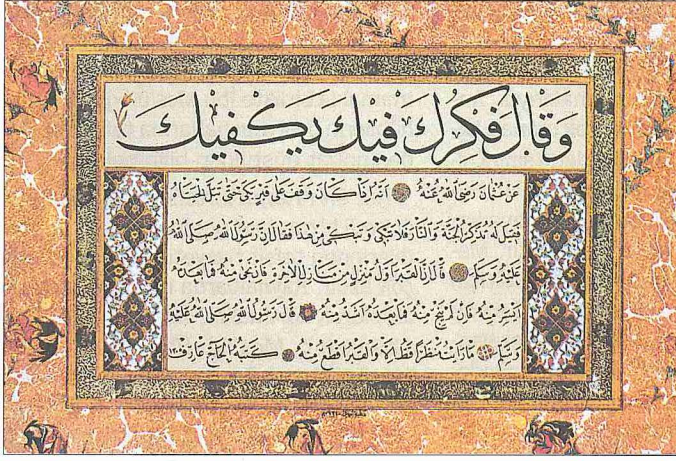 وَقَالَ فِكْرُكَ فِيكَ يَكْفِيكَ
عَنْ عُثْمَانَ رَضِيَ اللّٰهُ عَنْهُ اَنَّهُ اِذَا كَانَ وَقَفَ عَلَى قَبْرٍ بَكَى حَتَّى تَبَلَّ لِحْيَتَاهُ
فَقِيلَ لَهُ تَذْكُرُ الْجَنَّةَ وَالنَّارَ فَلَا تَبْكِى وَتَبْكِى مِنْ هٰذَا فَقَالَ اِنَّ رَسُولَ اللّٰهِ صَلَّى اللّٰهُ
عَلَيْهِ وَسَلَّمَ قَالَ اِنَّ الْقَبْرَ اَوَّلُ مَنْزِلٍ مِنْ مَنَازِلِ الْاٰخِرَةِ فَاِنْ نَجَى مِنْهُ فَمَا بَعْدَهُ
اَيْسَرُ مِنْهُ فَاِنْ لَمْ يَنْجُ مِنْهُ فَمَا بَعْدَهُ اَشَدُّ مِنْهُ قَالَ رَسُولُ اللّٰهِ صَلَّى اللّٰهُ عَلَيْهِ
وَسَلَّمَ مَا رَاَيْتُ مَنْظَرًا قَطُّ اِلَّا وَالْقَبْرُ اَفْظَعُ مِنْهُ كَتَبَهُ الْحَاجّ عَارِف